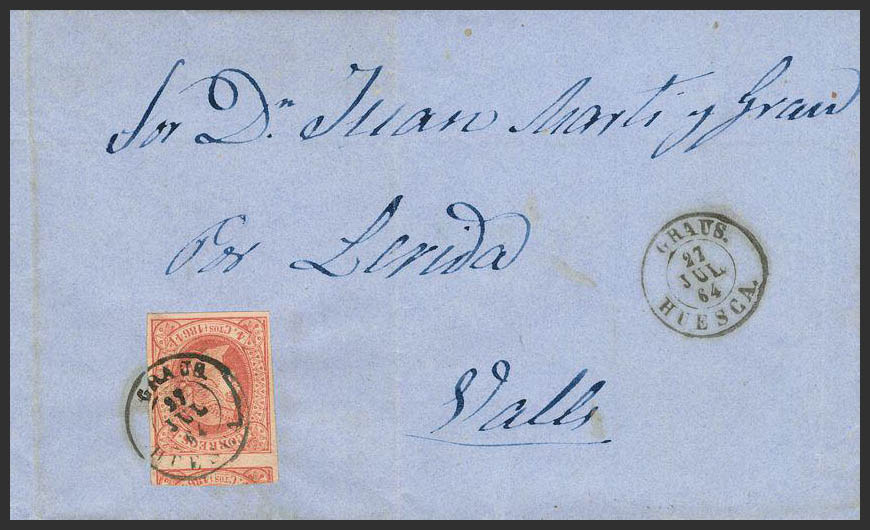 Sor Dn. Juan Marti y Grau
Por Lerida
Valls
GRAUS.
27
JUL
64
HUESCA.
4. CTOS 1864
GRAUS.
27
JUL
CORREOS
CTOS 186